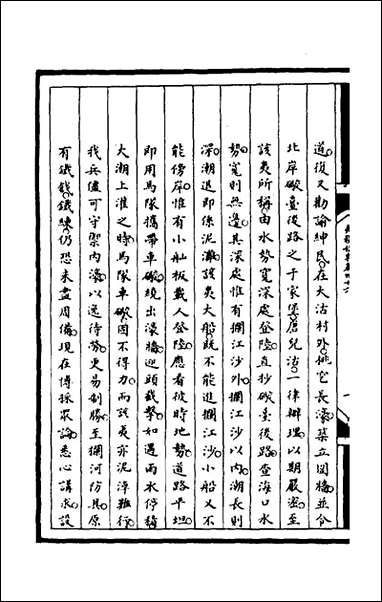 道後又勸諭紳民在大沽村外挑它長濠築立圍牆並令
北岸礮臺後路之于家堡唐兒沽一律辦理以期嚴密至
該夷所稱由水勢寬深處登陸直抄礮臺後路查海口水
勢寬則無邊其深處惟有攔江沙外攔江沙以內潮長則
深潮退即係泥灘該夷大船既不能進攔江沙小船又不
能傍岸惟有小舢板載人登陸應看彼時地勢道路平坦
即用馬隊攜帶車礮繞出濠牆迎頭截擊如遇雨水停積
大潮上淮之時馬隊車礮因不得力而該夷亦泥濘難行
我兵儘可守禦內濠以逸待勞更易制勝至攔河防具原
有鐵鎖鐵練仍恐未盡周備現在博採眾論悉心講求設